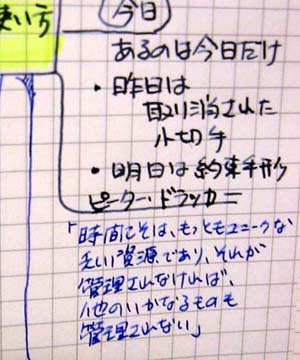 使い方
今日
あるのは今日だけ
・昨日は
取り消された
小切手
・明日は約束手形
ピーター・ドラッカー
「時間こそは、もっともユニークな
乏しい資源であり、それが
管理されなければ、
他のいかなるものも
管理されない」